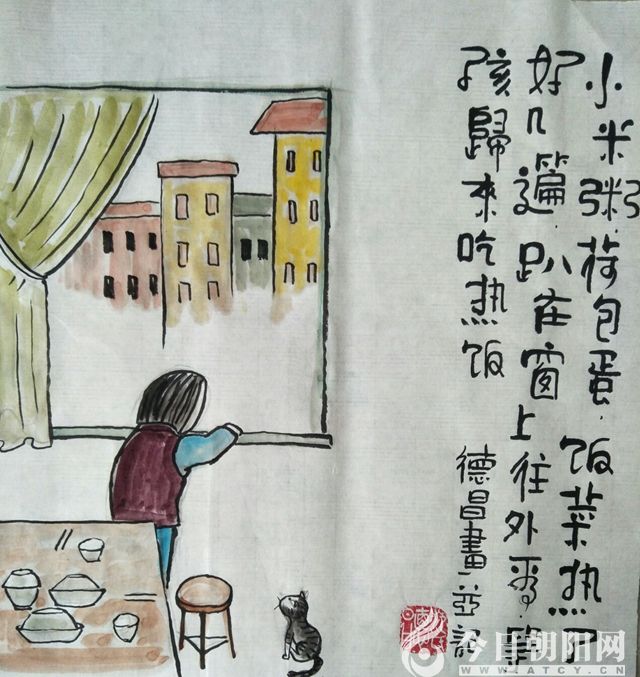 小米粥,荷包蛋,饭菜热了
好几遍,趴在窗上往外看,
孩歸来吃热饭
德昌畫並记
今日朝阳网
WWW.ATCY.CN